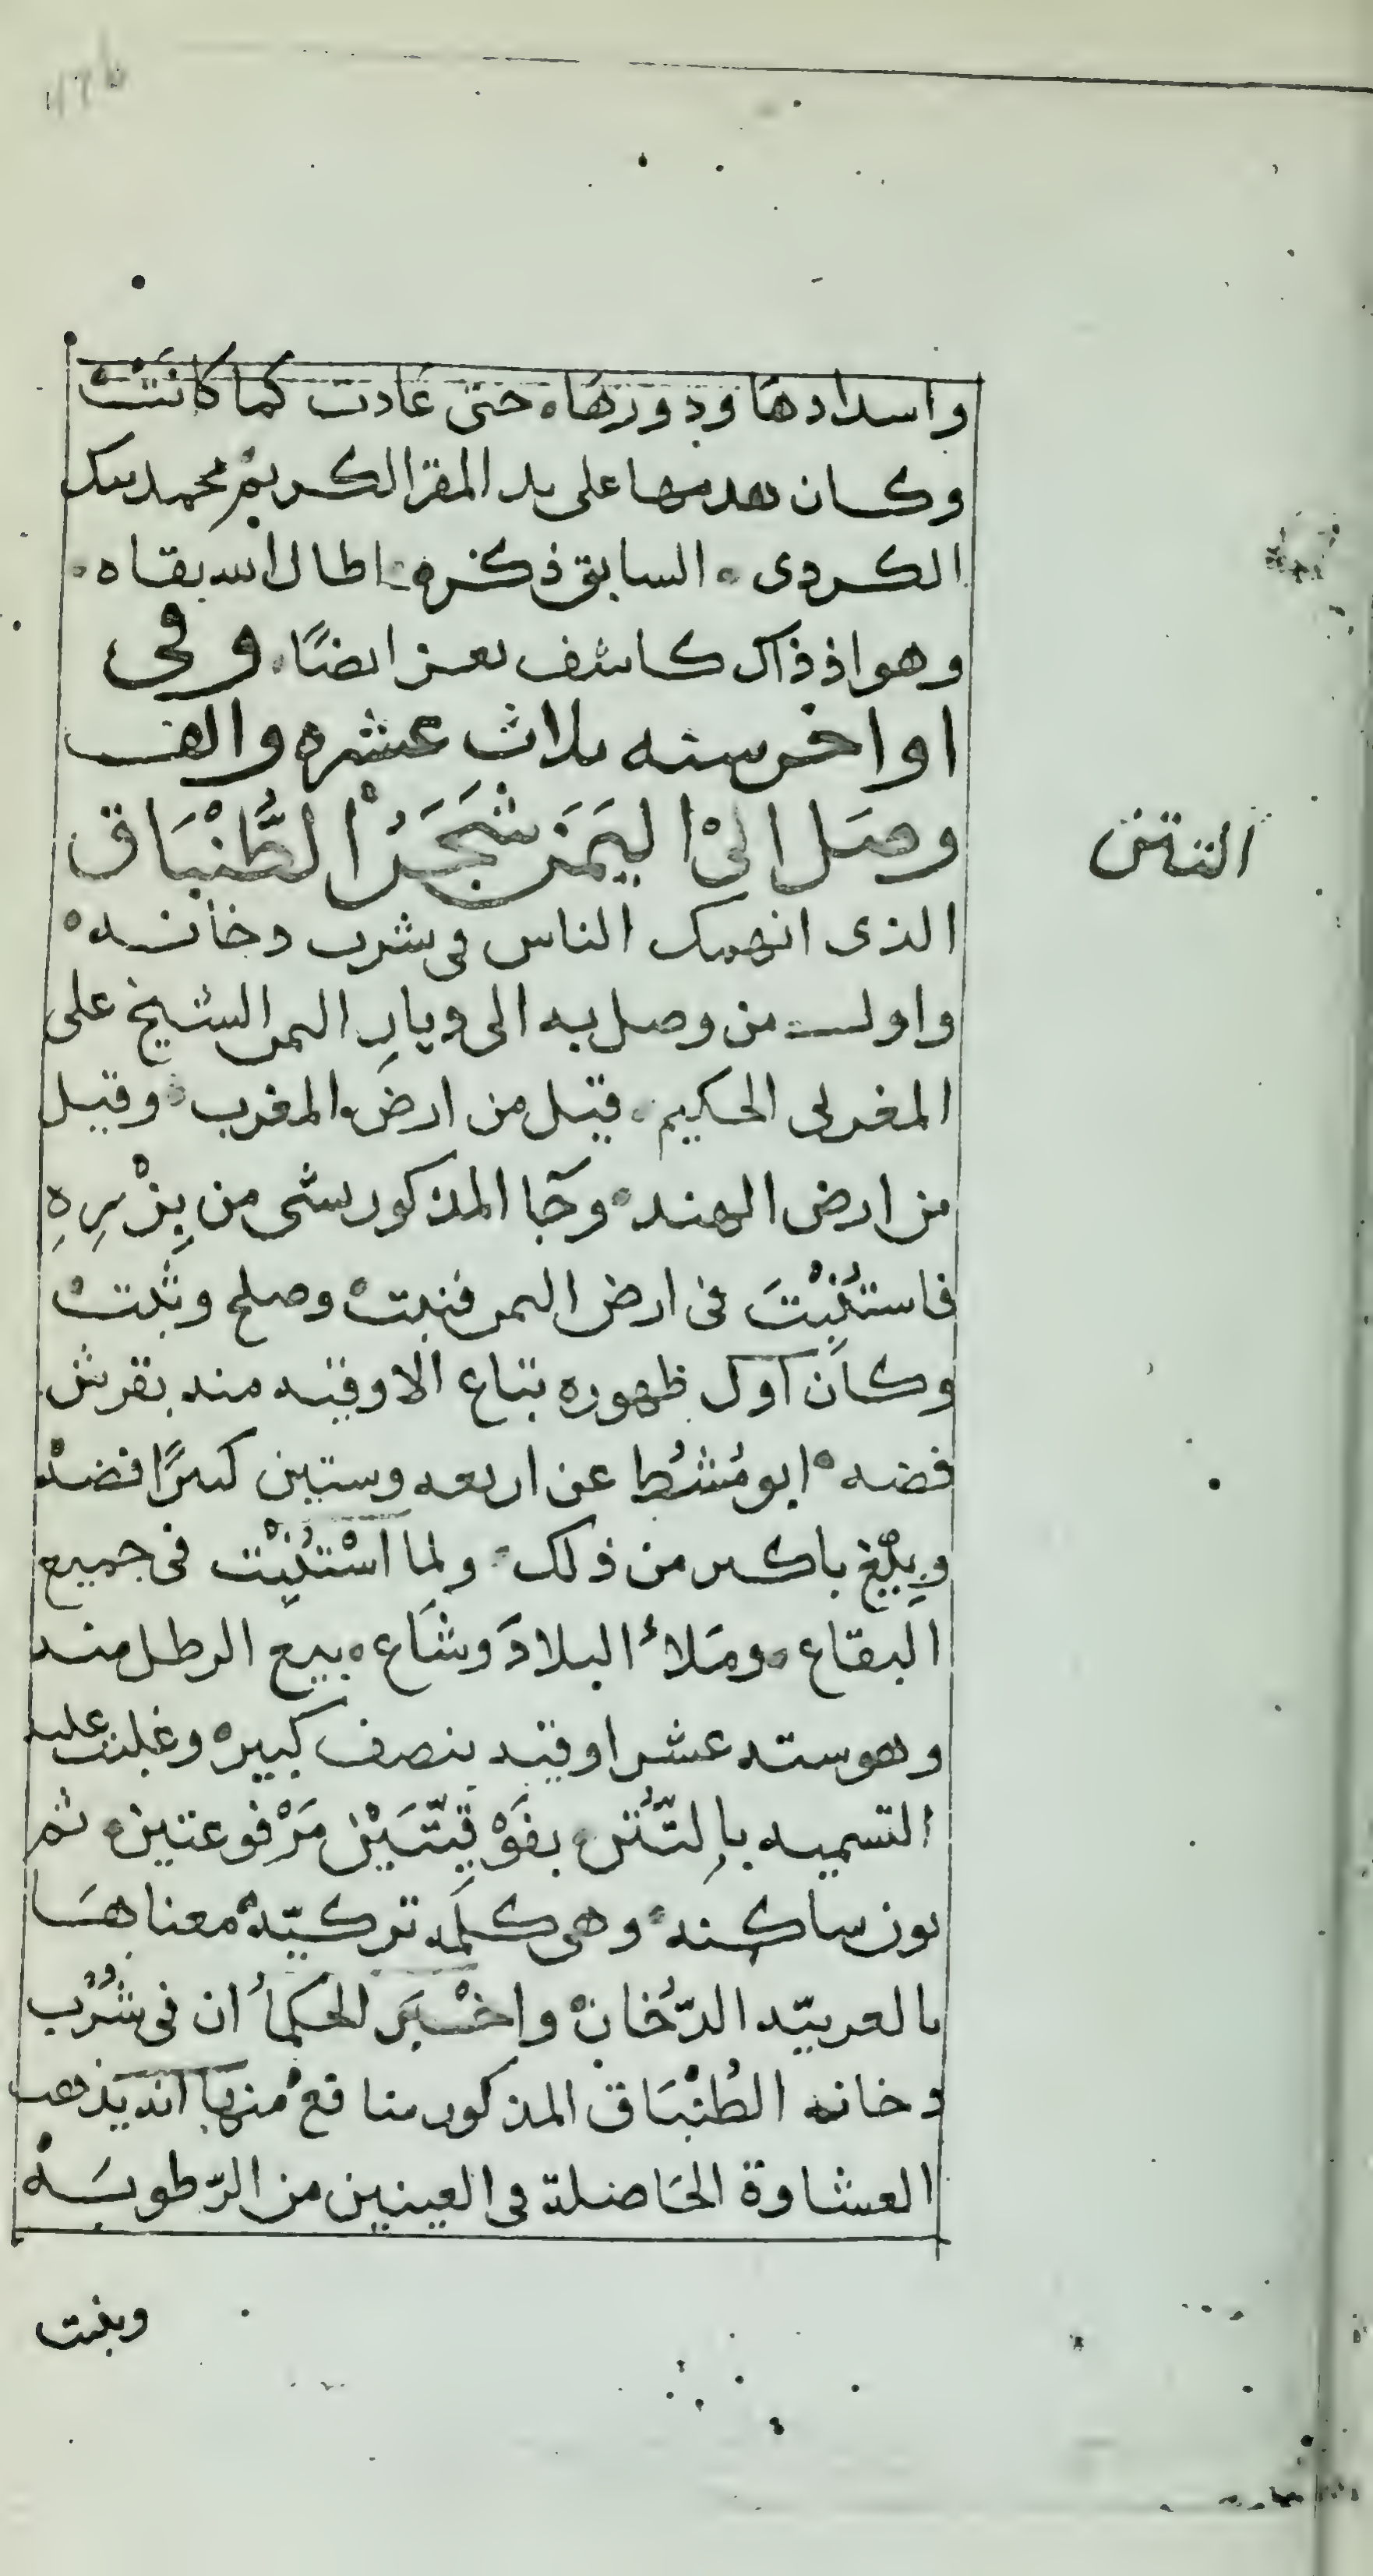 واسدادها ودورها ه حتى عادت كما كانت
وكان هدمها على يد المقر الكريم محمد بيك
الكردى ه السابق ذكره اطال الله بقاه ه
وهو اذ ذاك كاشف تعز ايضًا ه وفى
اواخر سنه ثلاث عشره والف
وصَل الىْ اليَمَن شَجَرُ الطُّنْبَاق
التتن
الذى انهمك الناس فى شرب دخانه ه
واول من وصل به الى ديارِ اليمن الشيخ على
المغربى الحكيم ه قيل من ارض المغرب ه وقيل
من ارض الهند ه وجَآ المذكور بشى من بِزْرِهِ
فاستُنْبِتَ فى ارض اليمن فنبتْ وصلح وثبتْ
وكان اول ظهوره تباع الاوقيه منه بقرش
فضه ه ابو مُشُط عن اربعه وستين كبيرًا فضه
وبِيْعْ باكثر من ذلك ه ولما اسْتُنْبِت فى جميع
البقاع ه ومَلأ البلادَ وشاع ه بيع الرطل منه
وهو سته عشر اوقيه بنصف كبيره وغلبت عليه
التسميه بالتُّتُن ه بفَوْقيّتَيْن مَرْفوعتين ه ثم
نون ساكنه ه وهى كلمه تركيّة معناهَا
بالعربيّه الدّخانْ واخْبَرَ الحكمأ ان فى شُرْب
دخانه الطُنْبَاق المذكور منافعْ منها انه يذهب
العشاوة الحَاصلة فى العينين من الرّطوبَة
وبنت